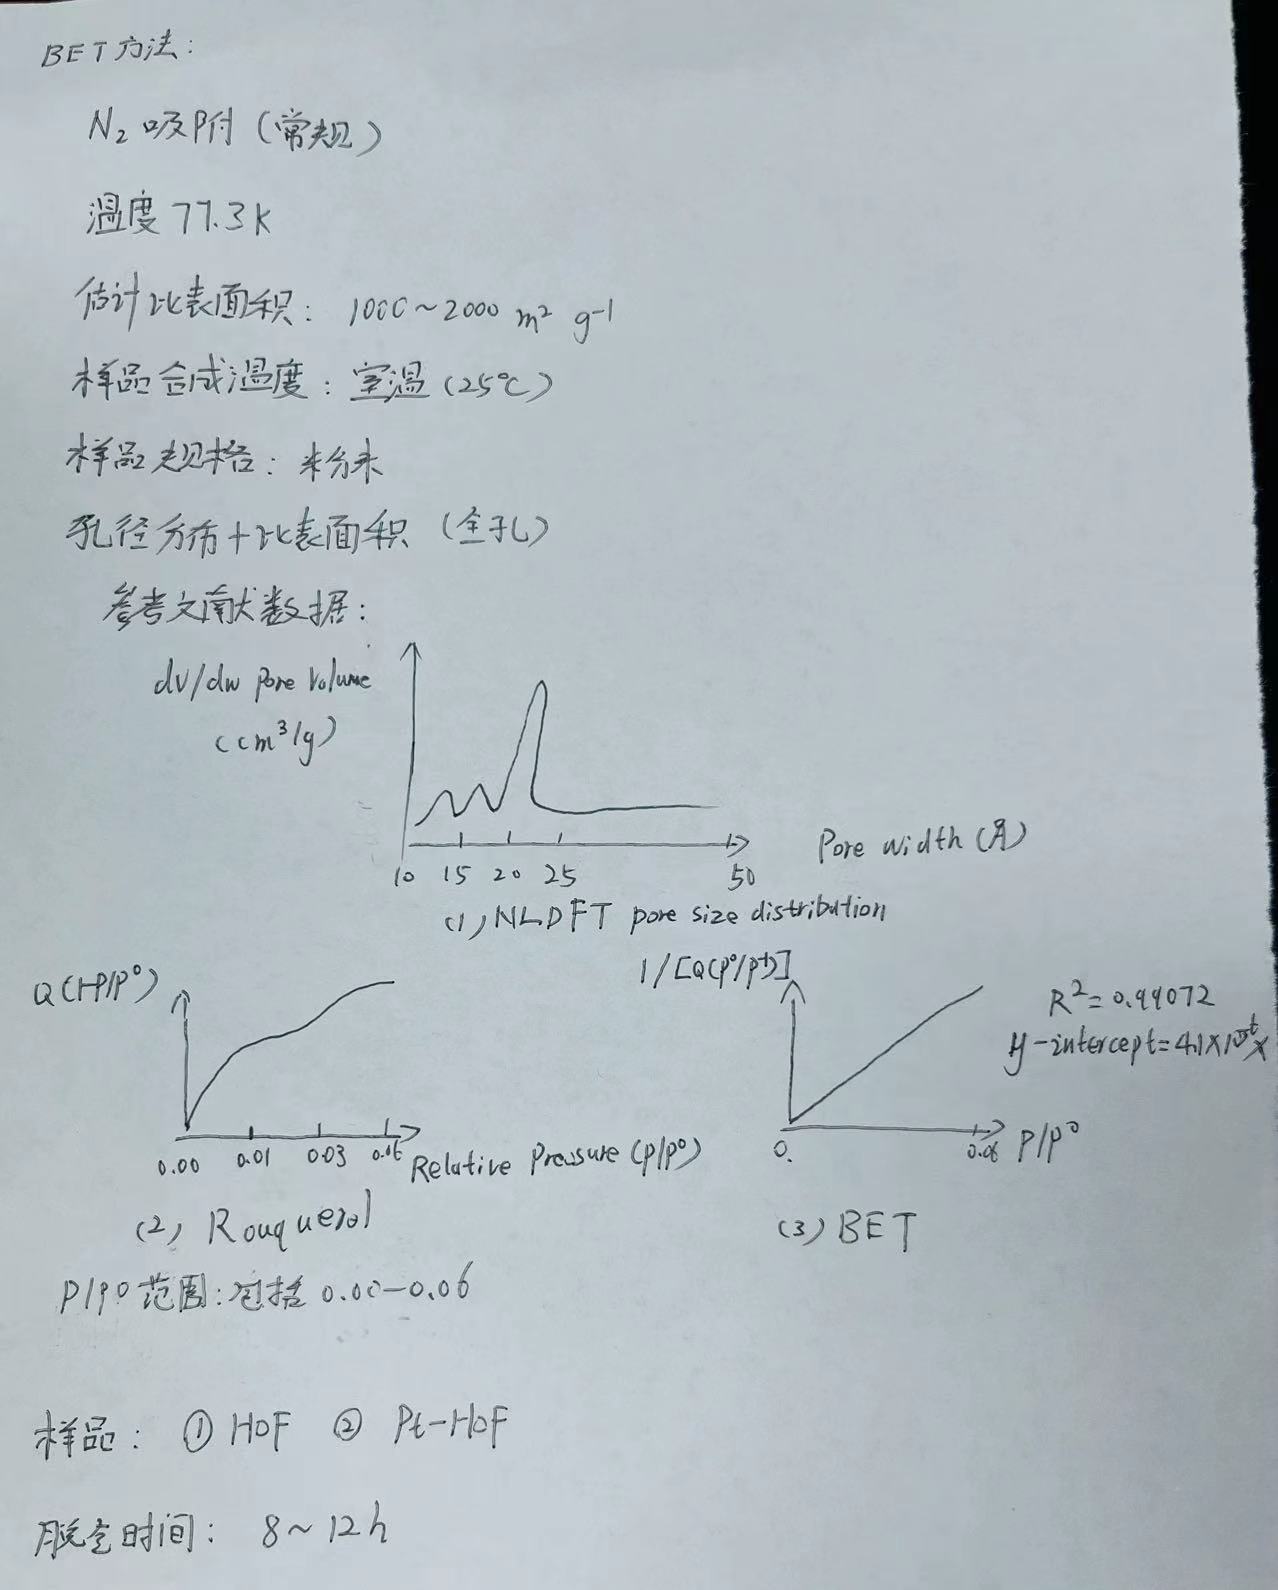 BET方法:
N₂ 吸附（常规）
温度 77.3K
估计比表面积: 1000~2000 m² g⁻¹
样品合成温度: 室温（25℃）
样品规格: 粉末
孔径分布+比表面积（全孔）
参考文献数据:
dv/dw Pore Volume
(cm³/g)
10 15 20 25 50
Pore width (Å)
(1) NLDFT pore size distribution
Q(1-P/P⁰)
0.00 0.01 0.03 0.06
Relative Pressure (P/P⁰)
(2) Rouquerol
1/[Q(P⁰/P-1)]
R²=0.99072
y-intercept=
0. 0.06 P/P⁰
(3) BET
P/P⁰ 范围: 包括 0.00-0.06
样品: ① HOF ② Pt-HOF
脱空时间: 8~12h